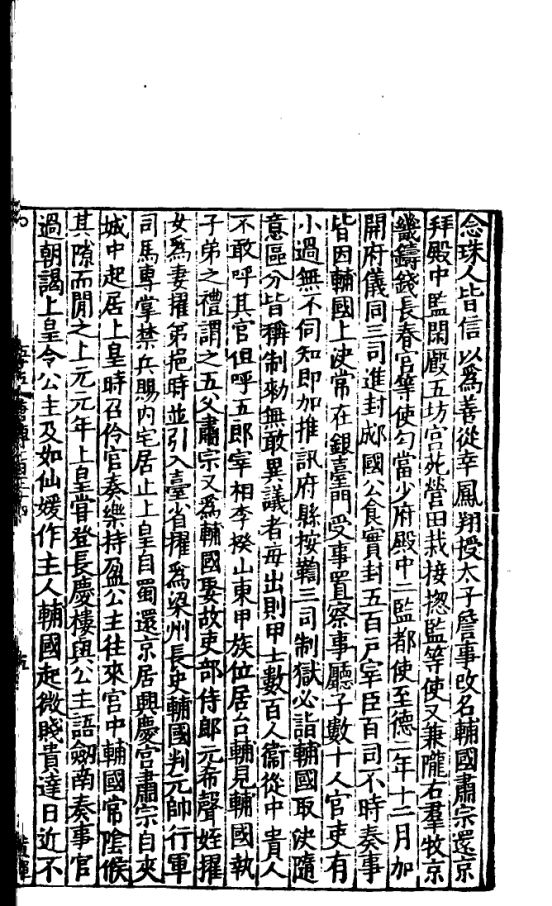 念珠人皆信以爲善從幸鳳翔授太子詹事改名輔國肅宗還京
拜殿中監閑廄五坊宫苑營田栽接捴監等使又兼隴右羣牧京
畿鑄錢長春宫等使勾當少府殿中二監都使至德二年十二月加
開府儀同三司進封郕國公食實封五百戶宰臣百司不時奏事
皆因輔國上決常在銀臺門受事置察事廳子數十人官吏有
小過無不伺知即加推訊府縣按鞫三司制獄必詣輔國取決隨
意區分皆稱制勑無敢異議者每出則甲士數百人衛從中貴人
不敢呼其官但呼五郎宰相李揆山東甲族位居台輔見輔國執
子弟之禮謂之五父肅宗又爲輔國娶故吏部侍郎元希聲姪擢
女爲妻擢弟挹時並引入臺省擢爲梁州長史輔國判元帥行軍
司馬專掌禁兵賜内宅居止上皇自蜀還京居興慶宫肅宗自夾
城中起居上皇時召伶官奏樂持盈公主往來宫中輔國常陰候
其隙而閒之上元元年上皇甞登長慶樓與公主語劔南奏事官
過朝謁上皇令公主及如仙媛作主人輔國起微賤貴達日近不